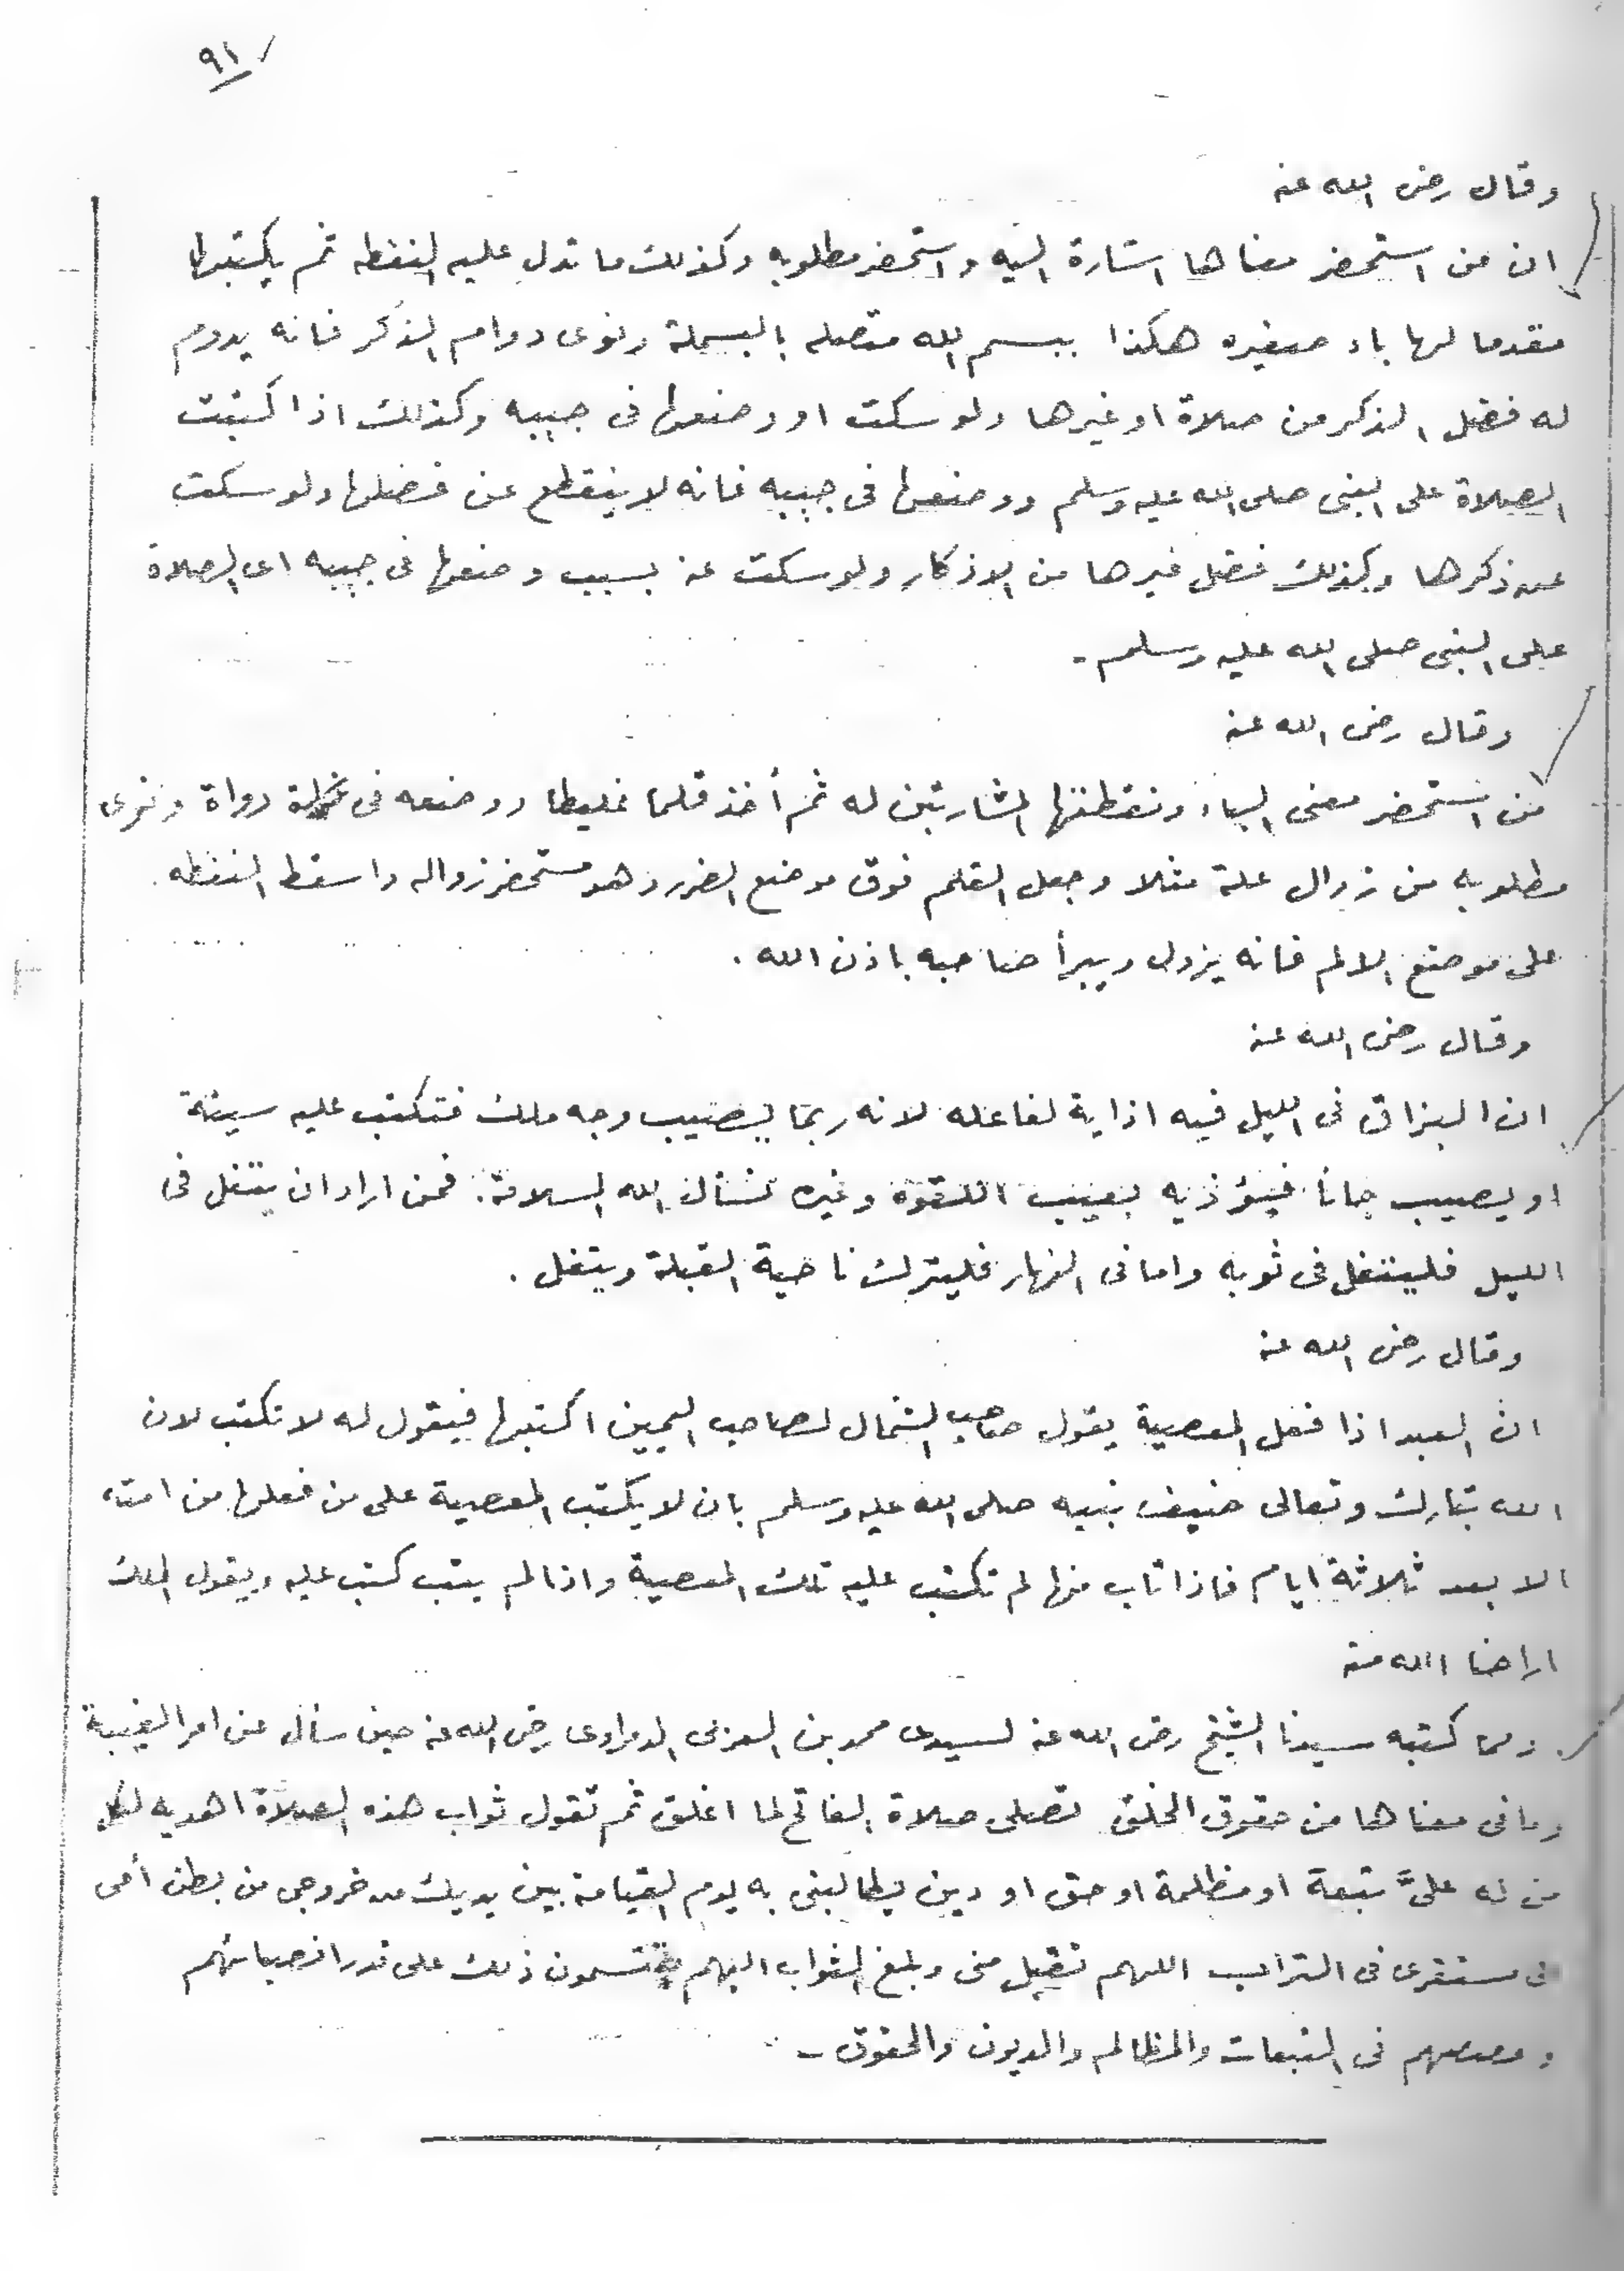 ٩١
وقال رضى الله عنه
ان من استحضر معناها اشارة اليه واستحضر مطلوبه وكذلك ما تدل عليه النقطه ثم يكتبها
مقدما لها باء صغيره هكذا ببسم الله متصله بالبسملة ونوى دوام الذكر فانه يدوم
له فضل الذكر من صلاة او غيرها ولو سكت او وضعها فى جيبه وكذلك اذا كتبت
الصلاة على النبى صلى الله عليه وسلم ووضعها فى جيبه فانه لا ينقطع عن فضلها ولو سكت
عن ذكرها وكذلك فضل غيرها من الاذكار ولو سكت عنه بسبب وضعها فى جيبه اى الصلاة
على النبى صلى الله عليه وسلم -
وقال رضى الله عنه
من استحضر معنى الباء ونقطتها المشار بتين له ثم أخذ قلما غليطا ووضعه فى دواة ونوى
مطلوبه من زوال علة مثلا وجعل القلم فوق موضع الضرر وهو مستحضر زواله واسقط النقطه
على موضع الالم فانه يزول ويبرأ صاحبه باذن الله .
وقال رضى الله عنه
ان البزاق فى الليل فيه اذاية لفاعله لانه ربما يصيب وجه ملك فتكتب عليه سيئة
او يصيب جانا فيؤذيه بعيب اللقوة وغيره نسأل الله السلامة. فمن اراد ان يتفل فى
الليل فليتفل فى ثوبه واما فى النهار فليترك ناحية القبلة ويتفل .
وقال رضى الله عنه
ان العبد اذا فعل المعصية يقول صاحب الشمال لصاحب اليمين اكتبها فيقول له لا تكتب لان
الله تبارك وتعالى ضيف نبيه صلى الله عليه وسلم بان لا يكتب المعصية على من فعلها من امته
الا بعد ثلاثة ايام فاذا تاب منها لم تكتب عليه تلك المعصية واذا لم يتب كتب عليه ويقول الملك
اراحنا الله منه
ومما كتبه سيدنا الشيخ رضى الله عنه لسيدى محمد بن العربى الدمراوى رضى الله عنه حين سأل عن امر الغيبة
وما فى معناها من حقوق الخلق تصلى صلاة الفاتح لما اغلق ثم تقول ثواب هذه الصلاة اهديه لكل
من له علىَّ تبعة او مظلمة او حق او دين يطالبنى به يوم القيامة بين يديك من خروجى من بطن أمى
الى مستقرى فى التراب اللهم تقبل منى وبلغ الثواب اليهم يقتسمون ذلك على قدر انصبائهم
وحصصهم فى التبعات والمظالم والديون والحقوق -